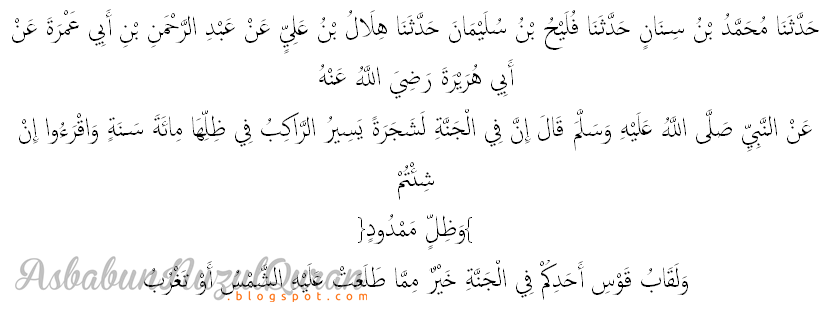 حَدَّثَنَا مُحَمَّدُ بْنُ سِنَانٍ حَدَّثَنَا فُلَيْحُ بْنُ سُلَيْمَانَ حَدَّثَنَا هِلَالُ بْنُ عَلِيٍّ عَنْ عَبْدِ الرَّحْمَنِ بْنِ أَبِي عَمْرَةَ عَنْ
أَبِي هُرَيْرَةَ رَضِيَ اللَّهُ عَنْهُ
عَنْ النَّبِيِّ صَلَّى اللَّهُ عَلَيْهِ وَسَلَّمَ قَالَ إِنَّ فِي الْجَنَّةِ لَشَجَرَةً يَسِيرُ الرَّاكِبُ فِي ظِلِّهَا مِائَةَ سَنَةٍ وَاقْرَءُوا إِنْ
شِئْتُمْ
}وَظِلٍّ مَمْدُودٍ{
وَلَقَابُ قَوْسِ أَحَدِكُمْ فِي الْجَنَّةِ خَيْرٌ مِمَّا طَلَعَتْ عَلَيْهِ الشَّمْسُ أَوْ تَغْرُبُ
AsbabunNuzulQuran
.blogspot.com